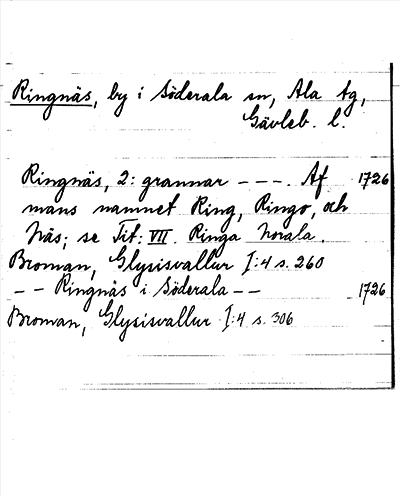 Ringnäs, by i Söderala sn, Ala tg,
Gävleb. l.
Ringnäs, 2: grannar - - -. Af 1726
mans namnet Ring, Ringo, och
Näs; se Tit: VII. Ringa Norala.
Broman, Glysisvallur I:4 s. 260
- - Ringnäs i Söderala - - 1726
Broman, Glysisvallur I:4 s. 306